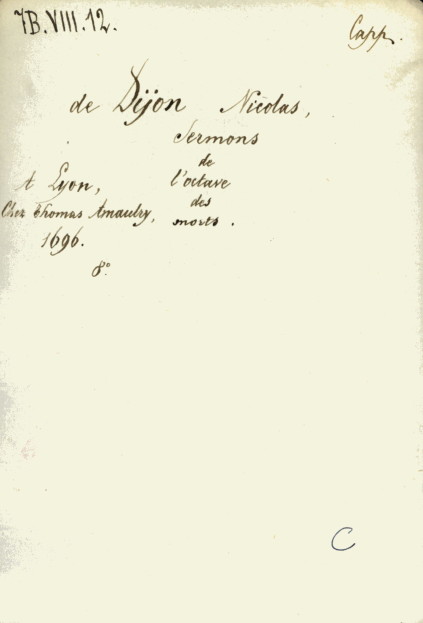 7B.VIII.12.
Capp.
de Dijon Nicolas,
Sermons
de
l'octave
des
morts.
A Lyon,
Chez Thomas Amaulry,
1696.
8°
C